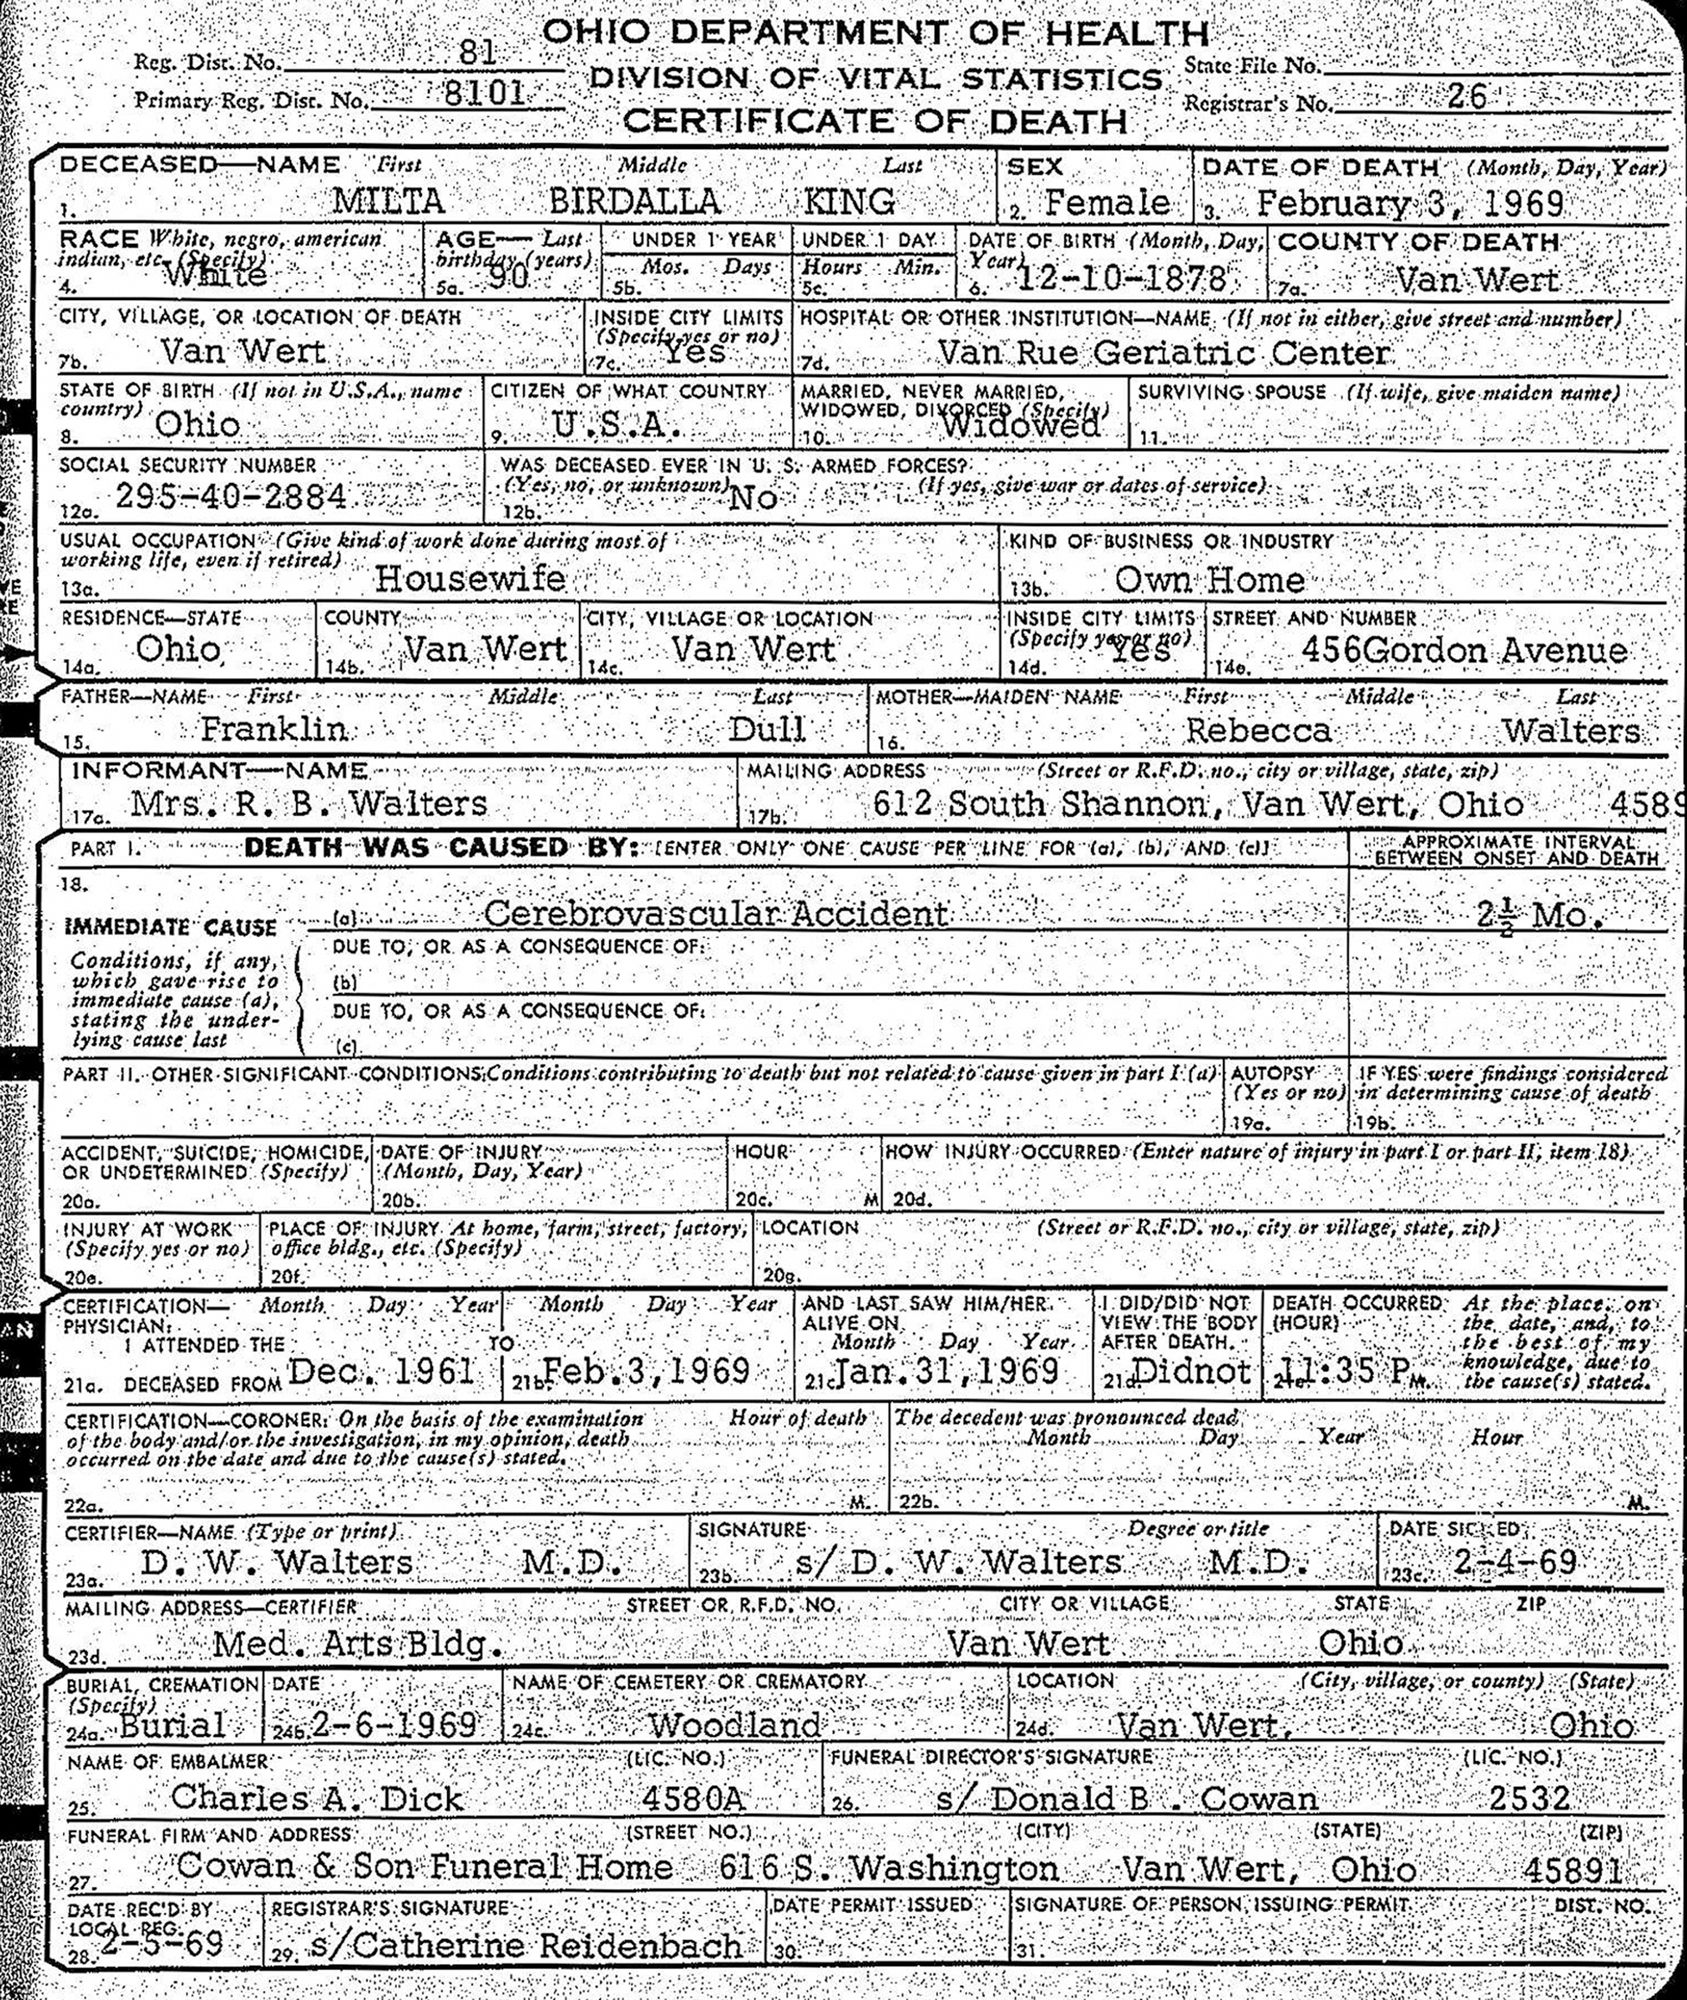 OHIO DEPARTMENT OF HEALTH
Reg. Dist. No. 81
DIVISION OF VITAL STATISTICS
State File No.
Primary Reg. Dist. No. 8101
Registrar's No. 26
CERTIFICATE OF DEATH
DECEASED—NAME First Middle Last SEX DATE OF DEATH (Month, Day, Year)
1. MILTA BIRDALLA KING 2. Female 3. February 3, 1969
RACE White, negro, american indian, etc. (Specify) AGE— Last birthday (years) UNDER 1 YEAR UNDER 1 DAY DATE OF BIRTH (Month, Day, Year) COUNTY OF DEATH
Mos. Days Hours Min.
4. White 5a. 90 5b. 5c. 6. 12-10-1878 7a. Van Wert
CITY, VILLAGE, OR LOCATION OF DEATH INSIDE CITY LIMITS (Specify yes or no) HOSPITAL OR OTHER INSTITUTION—NAME (If not in either, give street and number)
7b. Van Wert 7c. Yes 7d. Van Rue Geriatric Center
STATE OF BIRTH (If not in U.S.A., name country) CITIZEN OF WHAT COUNTRY MARRIED, NEVER MARRIED, WIDOWED, DIVORCED (Specify) SURVIVING SPOUSE (If wife, give maiden name)
8. Ohio 9. U.S.A. 10. Widowed 11.
SOCIAL SECURITY NUMBER WAS DECEASED EVER IN U. S. ARMED FORCES?
(Yes, no, or unknown) (If yes, give war or dates of service)
12a. 295-40-2884 12b. No
USUAL OCCUPATION (Give kind of work done during most of working life, even if retired) KIND OF BUSINESS OR INDUSTRY
13a. Housewife 13b. Own Home
RESIDENCE—STATE COUNTY CITY, VILLAGE OR LOCATION INSIDE CITY LIMITS (Specify yes or no) STREET AND NUMBER
14a. Ohio 14b. Van Wert 14c. Van Wert 14d. Yes 14e. 456Gordon Avenue
FATHER—NAME First Middle Last MOTHER—MAIDEN NAME First Middle Last
15. Franklin Dull 16. Rebecca Walters
INFORMANT—NAME MAILING ADDRESS (Street or R.F.D. no., city or village, state, zip)
17a. Mrs. R. B. Walters 17b. 612 South Shannon, Van Wert, Ohio 4589
PART I. DEATH WAS CAUSED BY: [ENTER ONLY ONE CAUSE PER LINE FOR (a), (b), AND (c)] APPROXIMATE INTERVAL BETWEEN ONSET AND DEATH
18.
IMMEDIATE CAUSE (a) Cerebrovascular Accident 2½ Mo.
DUE TO, OR AS A CONSEQUENCE OF:
Conditions, if any,
which gave rise to (b)
immediate cause (a),
stating the under- DUE TO, OR AS A CONSEQUENCE OF:
lying cause last (c)
PART II. OTHER SIGNIFICANT CONDITIONS: Conditions contributing to death but not related to cause given in part I (a) AUTOPSY (Yes or no) IF YES were findings considered in determining cause of death
19a. 19b.
ACCIDENT, SUICIDE, HOMICIDE, OR UNDETERMINED (Specify) DATE OF INJURY (Month, Day, Year) HOUR HOW INJURY OCCURRED (Enter nature of injury in part I or part II, item 18)
20a. 20b. 20c. M 20d.
INJURY AT WORK (Specify yes or no) PLACE OF INJURY At home, farm, street, factory, office bldg., etc. (Specify) LOCATION (Street or R.F.D. no., city or village, state, zip)
20e. 20f. 20g.
CERTIFICATION— PHYSICIAN: Month Day Year Month Day Year AND LAST SAW HIM/HER ALIVE ON Month Day Year I DID/DID NOT VIEW THE BODY AFTER DEATH. DEATH OCCURRED (HOUR) At the place, on the date, and, to the best of my knowledge, due to the cause(s) stated.
I ATTENDED THE TO
21a. DECEASED FROM Dec. 1961 21b. Feb.3,1969 21c. Jan.31,1969 21d. Didnot 21e. 11:35 P M.
CERTIFICATION—CORONER: On the basis of the examination of the body and/or the investigation, in my opinion, death occurred on the date and due to the cause(s) stated. Hour of death The decedent was pronounced dead
Month Day Year Hour
22a. M. 22b. M.
CERTIFIER—NAME (Type or print) SIGNATURE Degree or title DATE SIGNED
23a. D. W. Walters M.D. 23b. s/ D. W. Walters M.D. 23c. 2-4-69
MAILING ADDRESS—CERTIFIER STREET OR R.F.D. NO. CITY OR VILLAGE STATE ZIP
23d. Med. Arts Bldg. Van Wert Ohio
BURIAL, CREMATION (Specify) DATE NAME OF CEMETERY OR CREMATORY LOCATION (City, village, or county) (State)
24a. Burial 24b. 2-6-1969 24c. Woodland 24d. Van Wert, Ohio
NAME OF EMBALMER (LIC. NO.) FUNERAL DIRECTOR'S SIGNATURE (LIC. NO.)
25. Charles A. Dick 4580A 26. s/ Donald B . Cowan 2532
FUNERAL FIRM AND ADDRESS (STREET NO.) (CITY) (STATE) (ZIP)
27. Cowan & Son Funeral Home 616 S. Washington Van Wert, Ohio 45891
DATE REC'D BY LOCAL REG. REGISTRAR'S SIGNATURE DATE PERMIT ISSUED SIGNATURE OF PERSON ISSUING PERMIT DIST. NO.
28. 2-5-69 29. s/Catherine Reidenbach 30. 31.